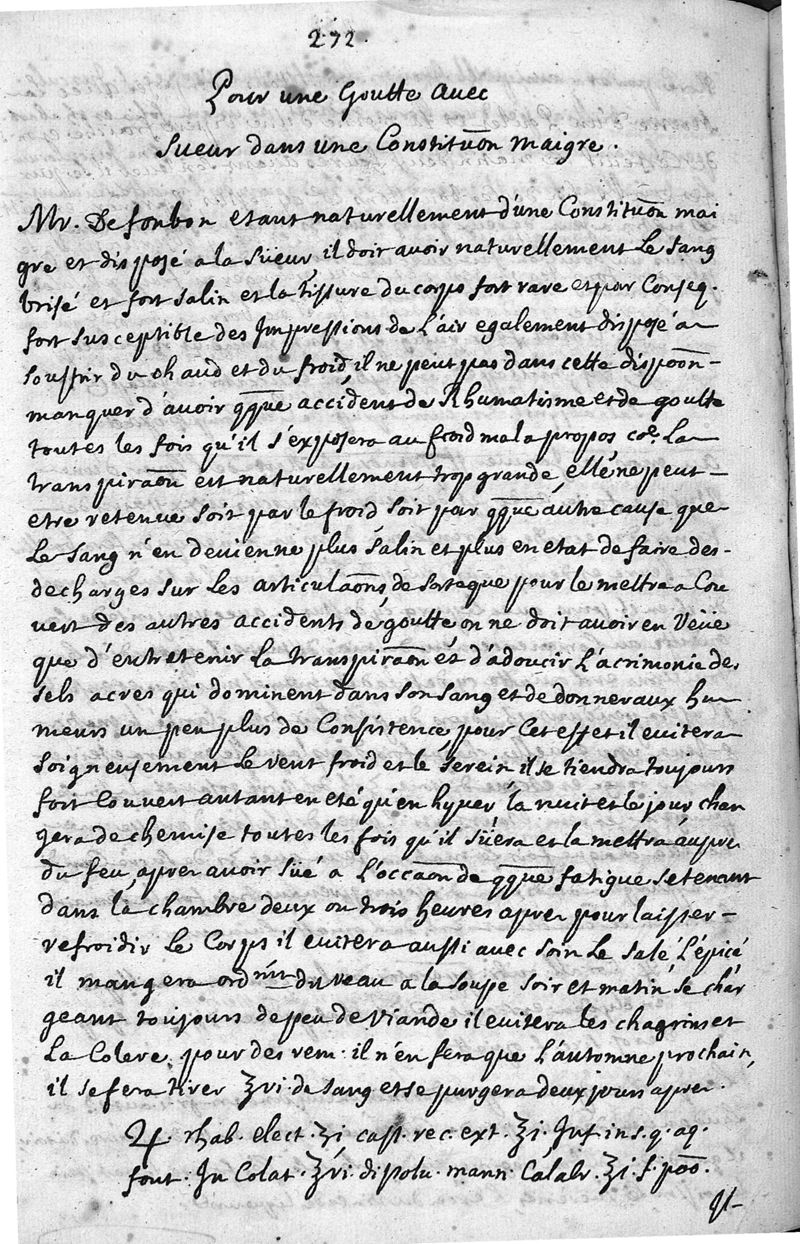 272.
Pour une Goutte avec
sueur dans une Constituōn maigre.
Mr. De fonbon etant naturellement d'une Constituōn mai
gre et disposé a la süeur, il doit avoir naturellement Le sang
brisé et fort salin et la tissure du corps fort rare et par Conseq.
fort susceptible des Impressions de L'air egalement disposé a
souffrir du chaud et du froid, il ne peut pas dans cette dispoōn
manquer d'avoir qq̄ue accident de Rhumatisme et de goutte
toutes les fois qu'il s'exposera au froid mal a propos, coē. La
transpiraōn est naturellement trop grande, elle ne peut
etre retenue soit par le froid soit par qq̄ue autre cause que
Le sang n'en devienne plus salin et plus en etat de faire des
decharges sur Les articulaōns, de sorte que pour le mettre a Cou
vert des autres accidents de goutte on ne doit avoir en Veüe
que d'entretenir La transpiraōn et d'adoucir L'acrimonie des
sels acres qui dominent dans son sang et de donner aux hu
meurs un peu plus de Consistence, pour Cet effet il evitera
soigneusement Le vent froid et le serein il se tiendra toujours
fort Couvert autant en eté qu'en hyver la nuit et le jour chan
gera de chemise toutes les fois qu'il süera et la mettra aupre
du feu, apres avoir süé a L'occaōn de qq̄ue fatigue se tenant
dans la chambre deux ou trois heures apres pour laisser
refroidir Le Corps il evitera aussi avec soin Le salé L'épicé
il mangera ord.nt du veau a la soupe soir et matin se char
geant toujours de peu de viande il evitera les chagrins et
La Colere. pour des rem. il n'en fera que L'automne prochain,
il se fera tirer ℥vi. de sang et se purgera deux jours apres.
♃. rhab. elect. ʒi cass. rec. ext. ℥i. Inf. in s. q. aq.
font. In Colat. ℥vi. disolu. mann. Calabr. ℥i f. poō.